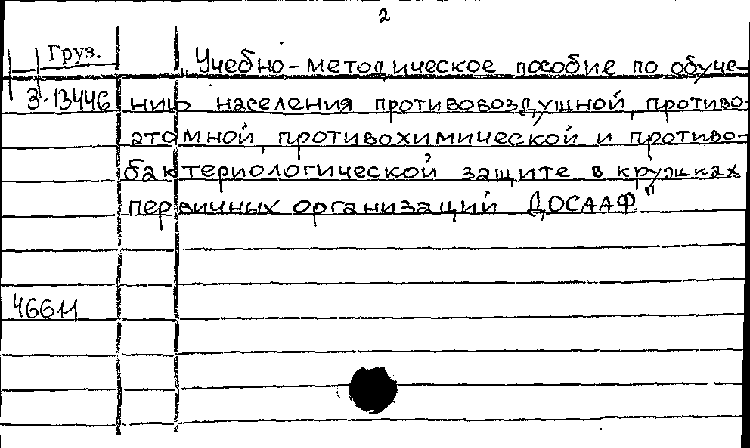 2
Груз.
„Учебно-методическое пособие по обуче-
3-13446 нию населения противовоздушной, противо-
атомной, противохимической и противо-
бактериологической защите в кружках
первичных организаций ДОСААФ"
46611